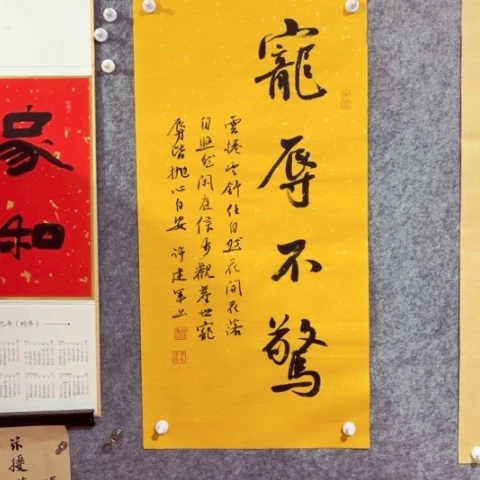 寵辱不驚
雲捲雲舒任自然花開花落
自悠然閑庭信步觀塵世寵
辱皆抛心自安 許建軍书
家和
巳年（蛇年）
接